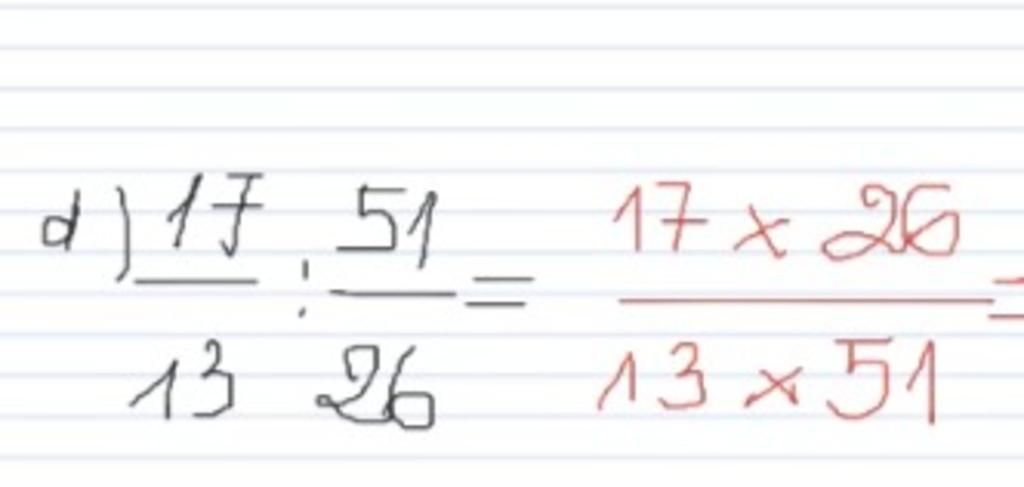 d) 17/13 : 51/26 = 17 x 26 / 13 x 51 =